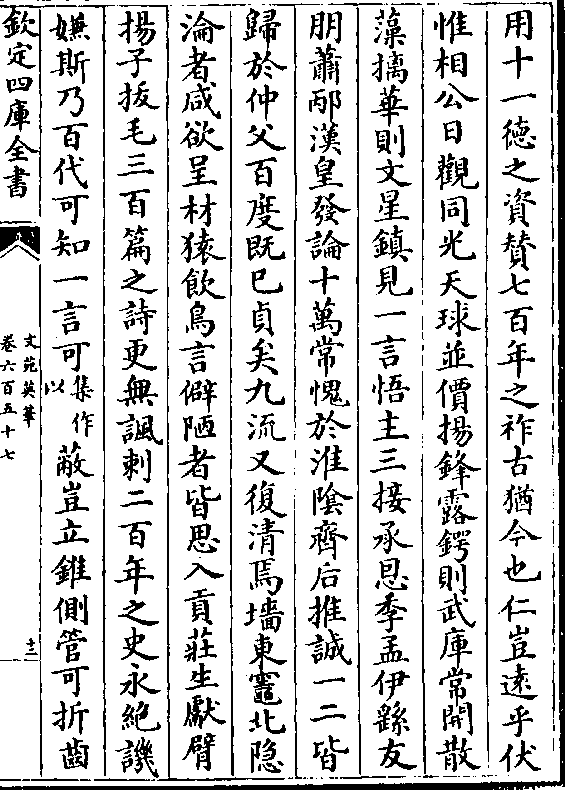 用十一德之資賛七百年之祚古猶今也仁豈遠乎伏
惟相公日觀同光天球並價揚鋒露鍔則武庫常開散
藻摛華則文星鎮見一言悟主三接承恩季孟伊繇友
朋蕭邴漢皇發論十萬常愧於淮陰齊后推誠一二皆
歸於仲父百度既已貞矣九流又復清焉墻東竈北隐
淪者咸欲呈材猿飲鳥言僻陋者皆思入貢莊生獻臂
揚子拔毛三百篇之詩更無諷刺二百年之史永絶譏
嫌斯乃百代可知一言可集作以蔽豈立錐側管可折齒
欽定四庫全書
文苑英華
卷六百五十七
十三